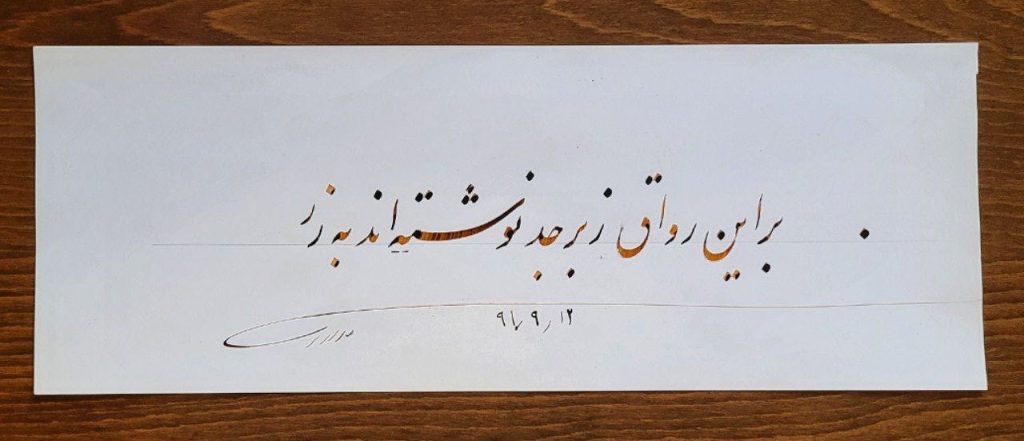 بر این رواق زبرجد نوشته‌اند به زر
۹۱/۹/۱۲